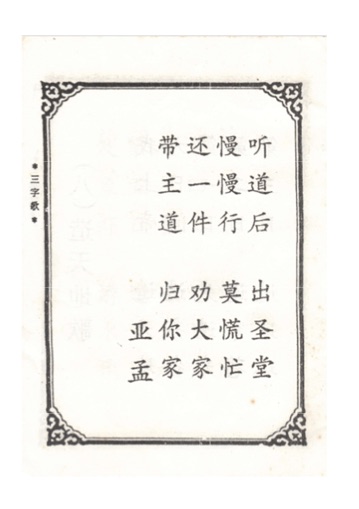 听道后 出圣堂
慢慢行 莫慌忙
还一件 劝大家
带主道 归你家
亚孟
*三字歌*